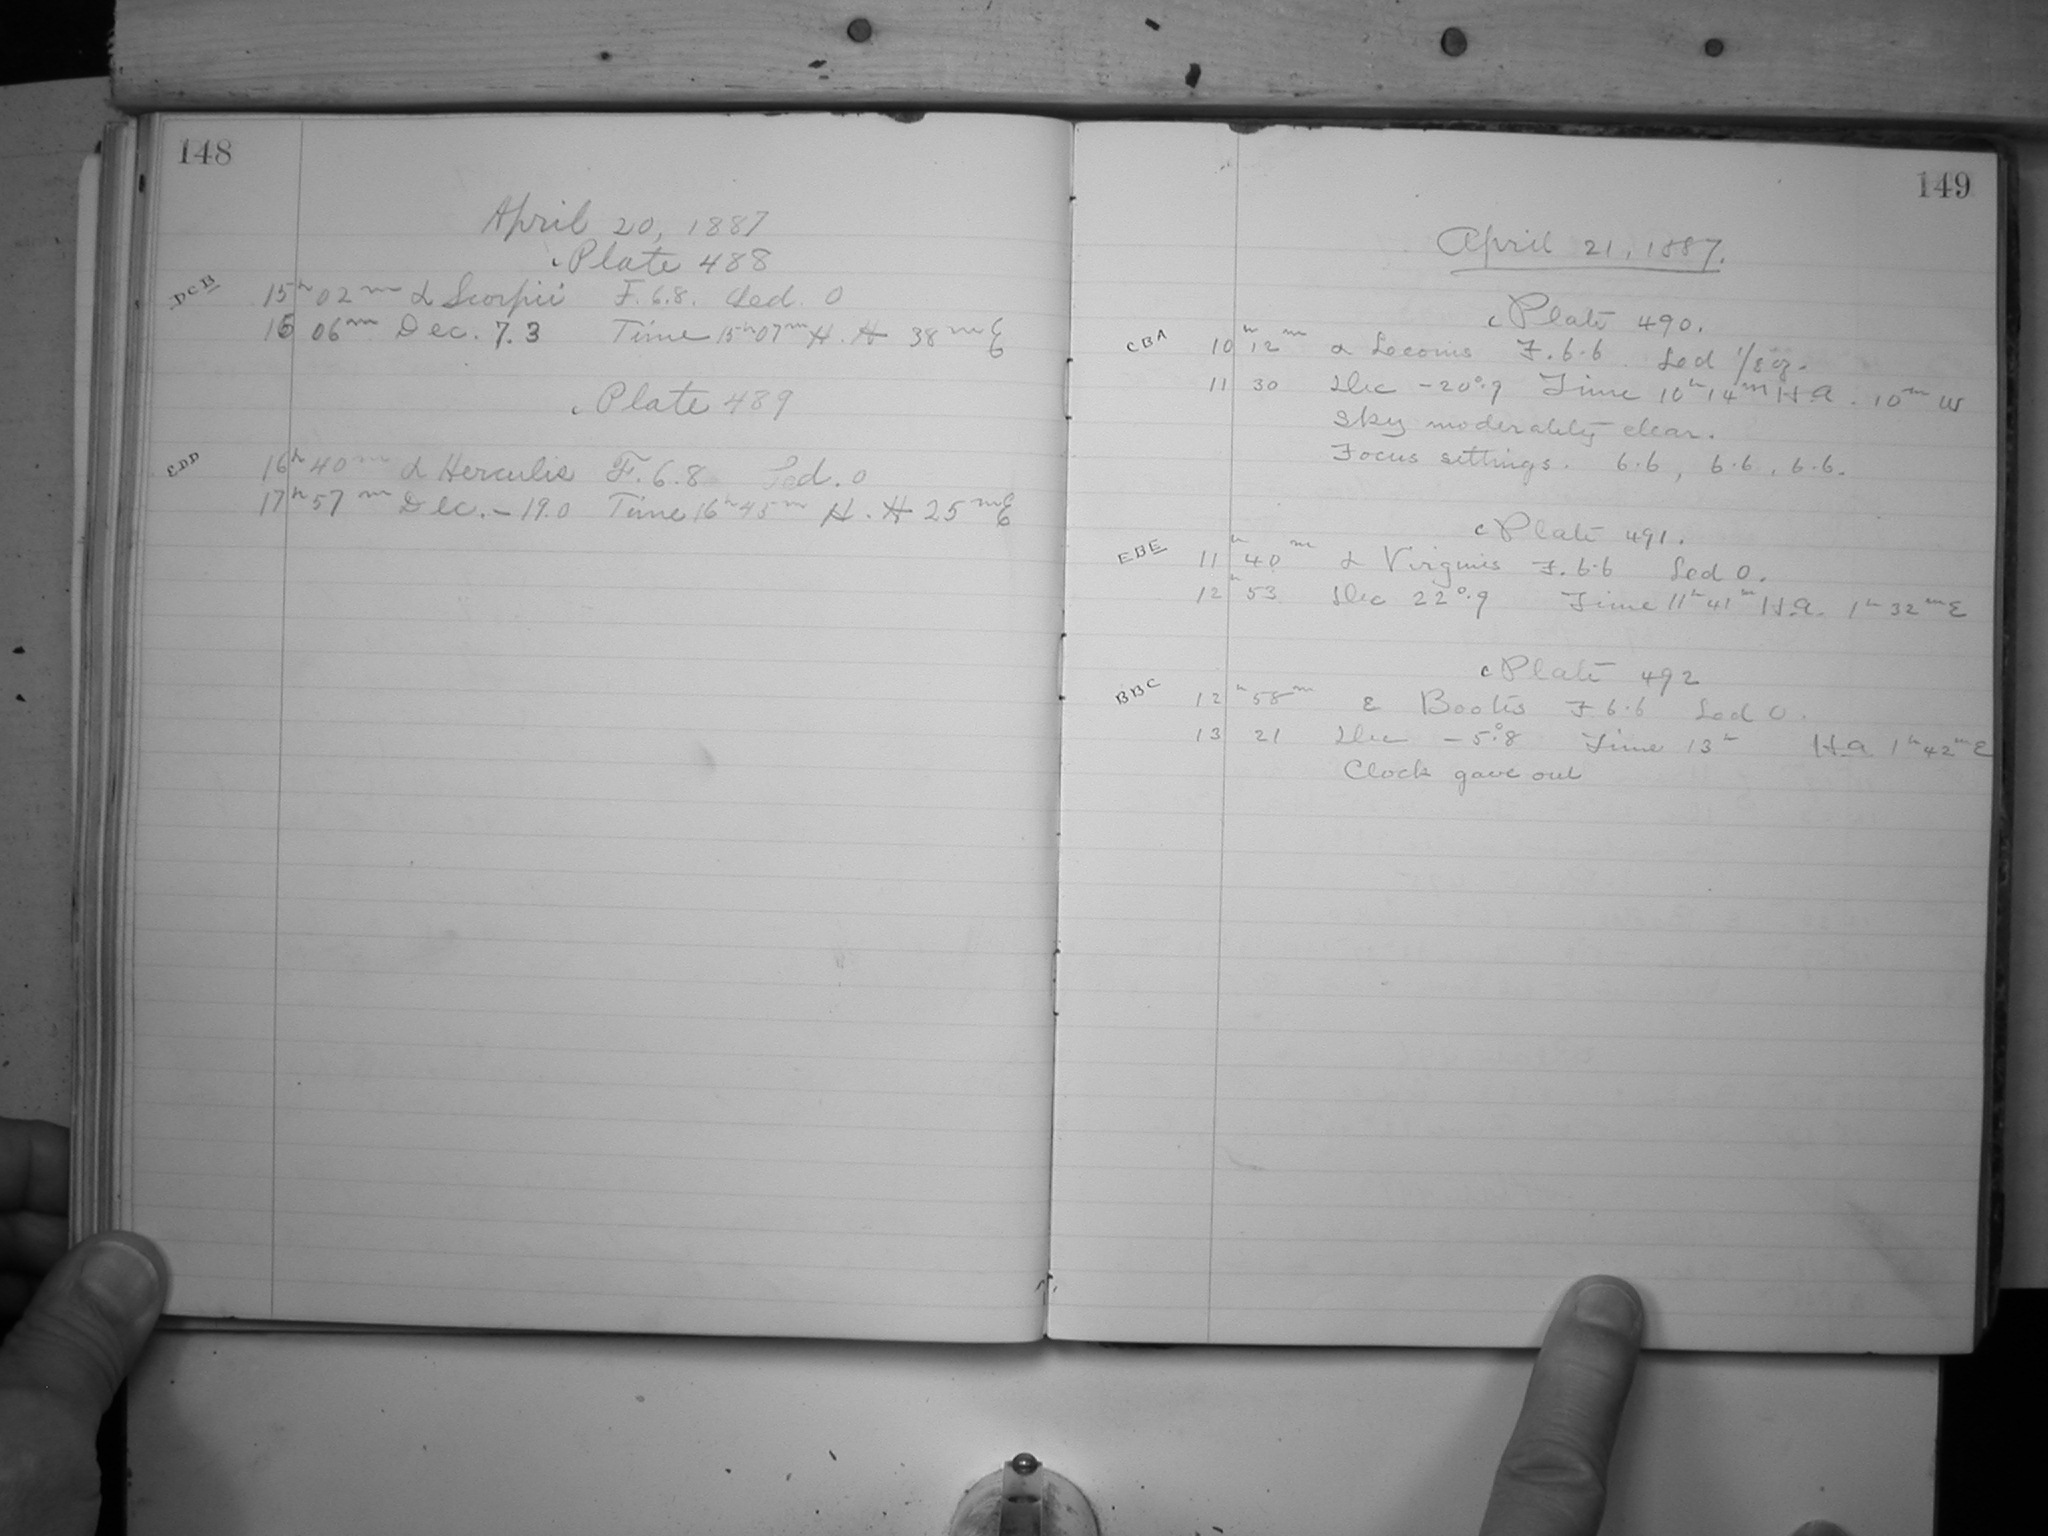 148
April 20, 1887
c Plate 488
DCB 15h 02m α Scorpii F. 6.8. Led. 0
16 06m Dec. 7.3 Time 15h 07m H. A 38m E
c Plate 489
EDD 16h 40m α Herculis F. 6.8 Led. 0
17h 57m Dec. - 19.0 Time 16h 45m H. A 25m E
149
April 21, 1887.
c Plate 490.
CBA 10h 12m α Leconis F. 6.6 Led 1/8 oz.
11 30 Dec - 20°.9 Time 10h 14m H A. 10m W
Sky moderately clear.
Focus settings. 6.6, 6.6, 6.6.
c Plate 491.
EBE 11h 40m α Virginis F. 6.6 Led 0.
12h 53 Dec 22°.9 Time 11h 41m H.a. 1h 32m E
c Plate 492
BBC 12h 58m ε Bootis F 6.6 Led 0.
13 21 Dec - 5°.8 Time 13h H a 1h 42m E
Clock gave out